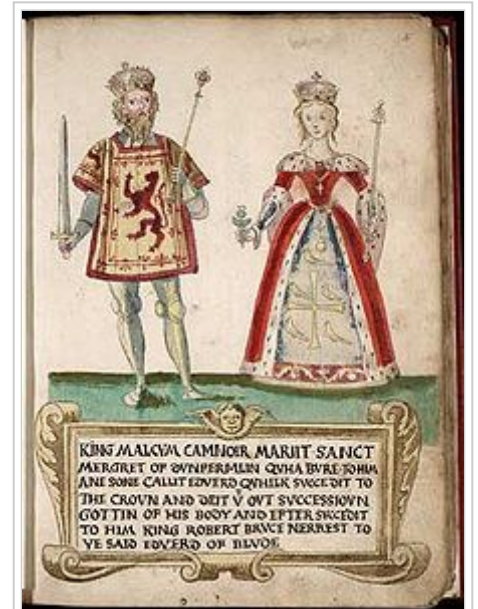 KING MALCVM CAMNOIR MARIIT SANCT
MERGRET OF DVNFERMLIN QVHA BVRE TO HIM
ANE SONE CALLIT EDVERD QVHILK SVCCEDIT TO
THE CROVN AND DEIT V OVT SVCCESSIOVN
GOTTIN OF HIS BODY AND EFTER SVCCEDIT
TO HIM KING ROBERT BRVCE NERREST TO
YE SAID EDVERD OF BLVDE